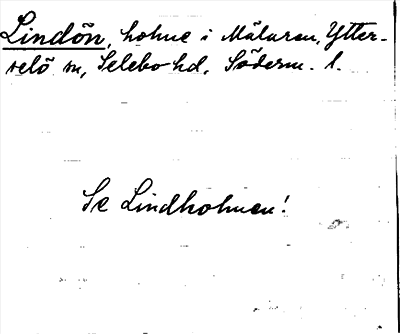 Lindön, holme i Mälaren, Ytter-
selö sn, Selebo hd, Söderm. l.
Se Lindholmen!